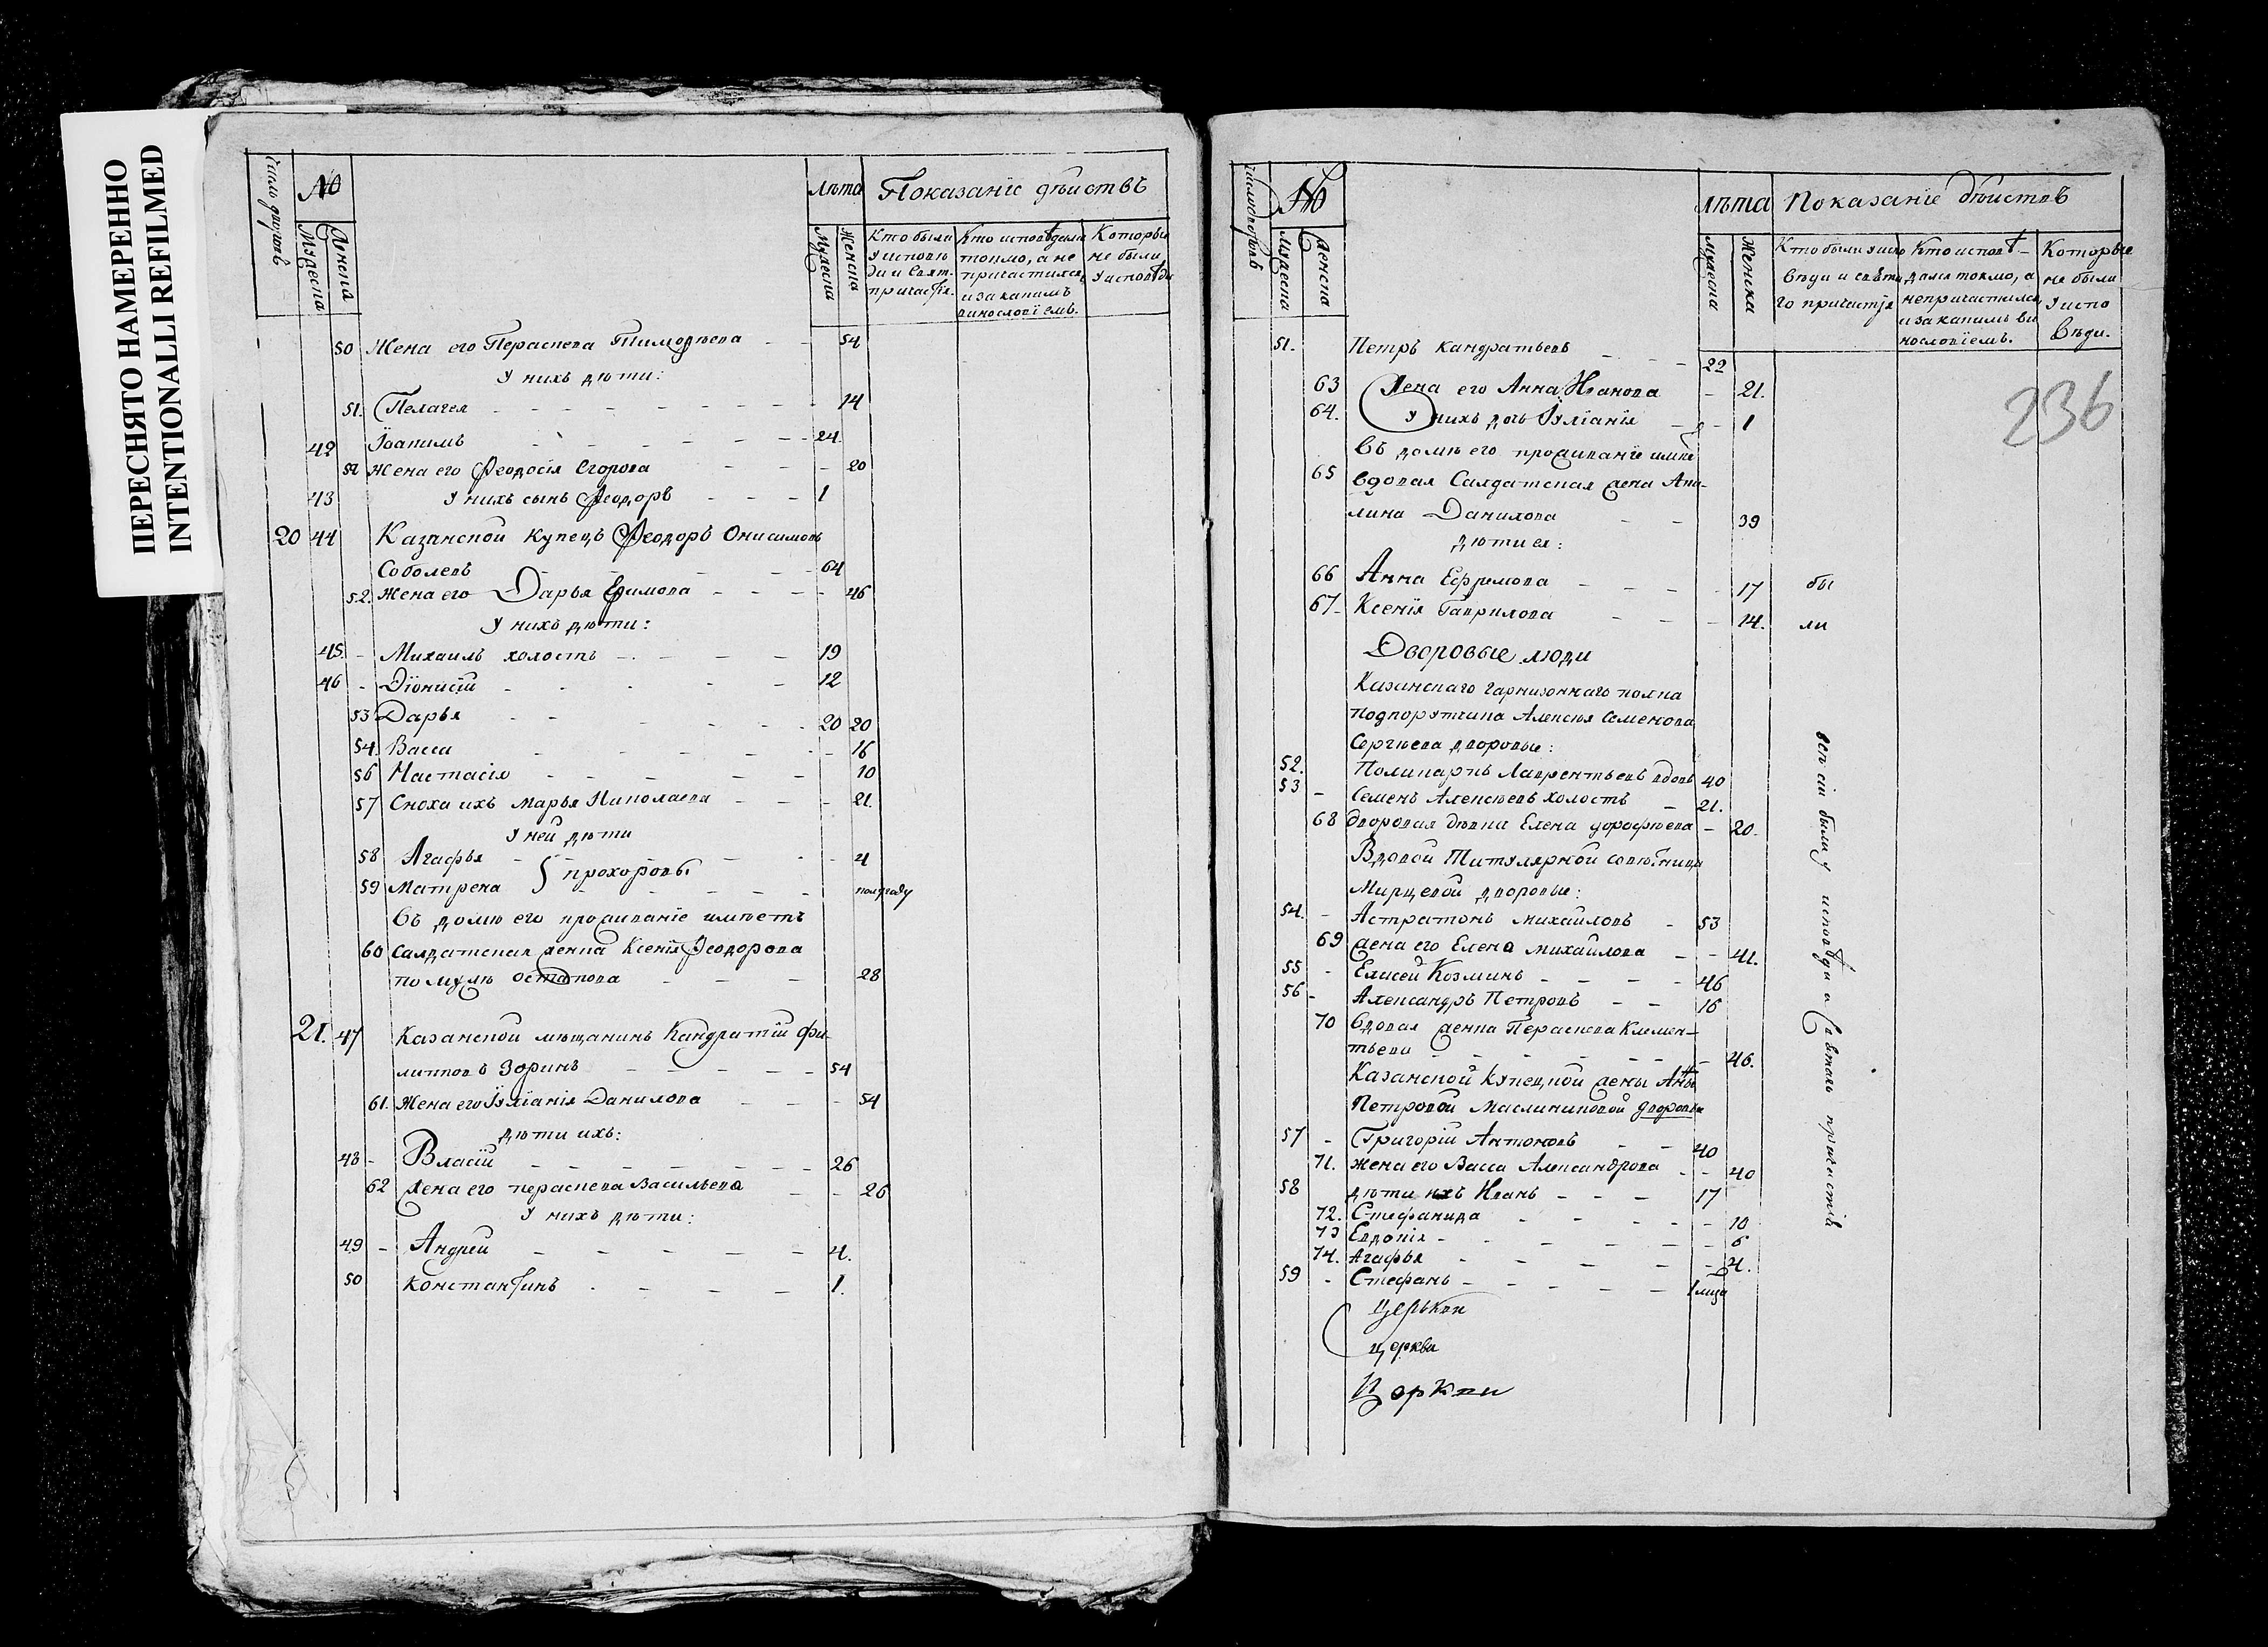 ПЕРЕСНЯТО НАМЕРЕННО
INTENTIONALLI REFILMED
Число дворовъ
№
Мужеска
Женска
лѣта
Мужеска
Женска
Показанїе дѣиствъ
Кто были
у исповѣ
ди и Свят.
причастїя.
Кто исповѣдался
токмо, а не
причастился,
и за какимъ
винословїемъ.
Которые
не были
у исповѣди
50 Жена его Пераскева Тимофѣева - - 54
У нихъ дѣти:
51. Пелагея - - - - - - - 14
42 Їоакимъ - - - - - - 24.
52 Жена его Феодосїя Егорова - - - 20
43 У нихъ сынъ Феодоръ - - - 1
20 44 Казанской купецъ Феодоръ Онисимовъ
Соболевъ - - - - - 64
52. Жена его Дарья Ефимова - - - - 46
У нихъ дѣти:
45. - Михаилъ холостъ - - - - 19
46 - Дїонисїй - - - - - 12
53 Дарья - - - - - - 20 20
54. Васса - - - - - - 16
56 Настасїя - - - - - 10
57 Сноха ихъ Марья Николаева - - - 21.
У ней дѣти
58 Агафья - - - - - 4
59 Матрена } прохоровы - - - - полугоду
Въ домѣ его проживанїе имѣетъ
60 Салдатская женка Ксенїя Феодорова
по мужѣ Остапова - - - 28
21. 47 Казанской мѣщанинъ Кандратїй Фи-
липповъ Зоринъ - - - - - 54
61. Жена его Їулїанїя Данилова - - - 54
дѣти ихъ:
48 - Власїй - - - - - - - 26
62 Жена его пераскева Васильева - - 26
У нихъ дѣти:
49 - Андрей - - - - - 4.
50 Константинъ - - - - 1.
Число дворовъ
№
Мужеска
Женска
лѣта
Мужеска
Женска
Показанїе дѣйствъ
Кто были у испо
вѣди и свята
го причастїя
Кто исповѣ-
дался токмо, а
не причастился,
и за какимъ ви
нословїемъ.
Которые
не были
у испо
вѣди.
236
51. Петръ Кандратьевъ - - - 22
63 Жена его Анна Иванова - 21.
64. У нихъ дочь Їулїанїя - - 1
Въ домѣ его проживанїе имѣе
65 вдовая Салдатская жена Аку-
лина Данилова - - 39
дѣти ея:
66 Анна Ефремова - - - 17 бы
67 - Ксенїя Гаврилова - - - 14. ли
Дворовые люди
Казанскаго гарнизоннаго полка
Подпорутчика Алексѣя Семенова
Сергѣева дворовые:
52. Поликарпъ Лаврентьевъ вдовъ 40
53 - Семенъ Алексѣевъ холостъ - 21.
68 дворовая дѣвка Елена дорофѣева - 20.
Вдовой Титулярной совѣтницы
Мирцевой дворовые:
54. - Астратонъ Михайловъ - 53
69 жена его Елена михайлова - - 41.
55 - Елисей Козминъ - - - - 46
56 - Александръ Петровъ - - 16
70 Вдовая женка Пераскева Клемен-
тьева - - - - - - - 46.
Казанской купецкой жены Анны
Петровой Маслениковой дворовые
57 - Григорїй Антоновъ - - 40
71. жена его Васса Александрова - - 40
58 дѣти ихъ Иванъ - - - 17
72. Стефанида - - - - - 10
73 Евдокїя - - - - - - 6
74. Агафья - - - - - - 4.
59 - Стефанъ - - - - - 1
всѣ сїи были у исповѣди и Святаго причастїя
Церькви
церкви
Церкви